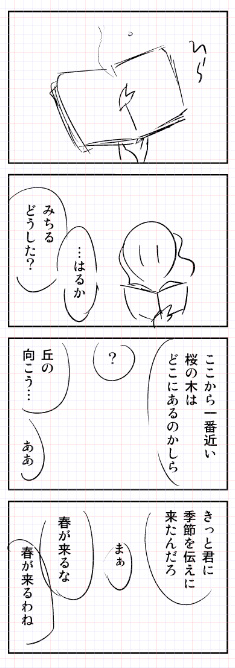 ひらっ
みちる
どうした？
…はるか
ここから一番近い
桜の木は
どこにあるのかしら
？
丘の
向こう…
ああ
きっと君に
季節を伝えに
来たんだろ
まぁ
春が来るな
春が来るわね